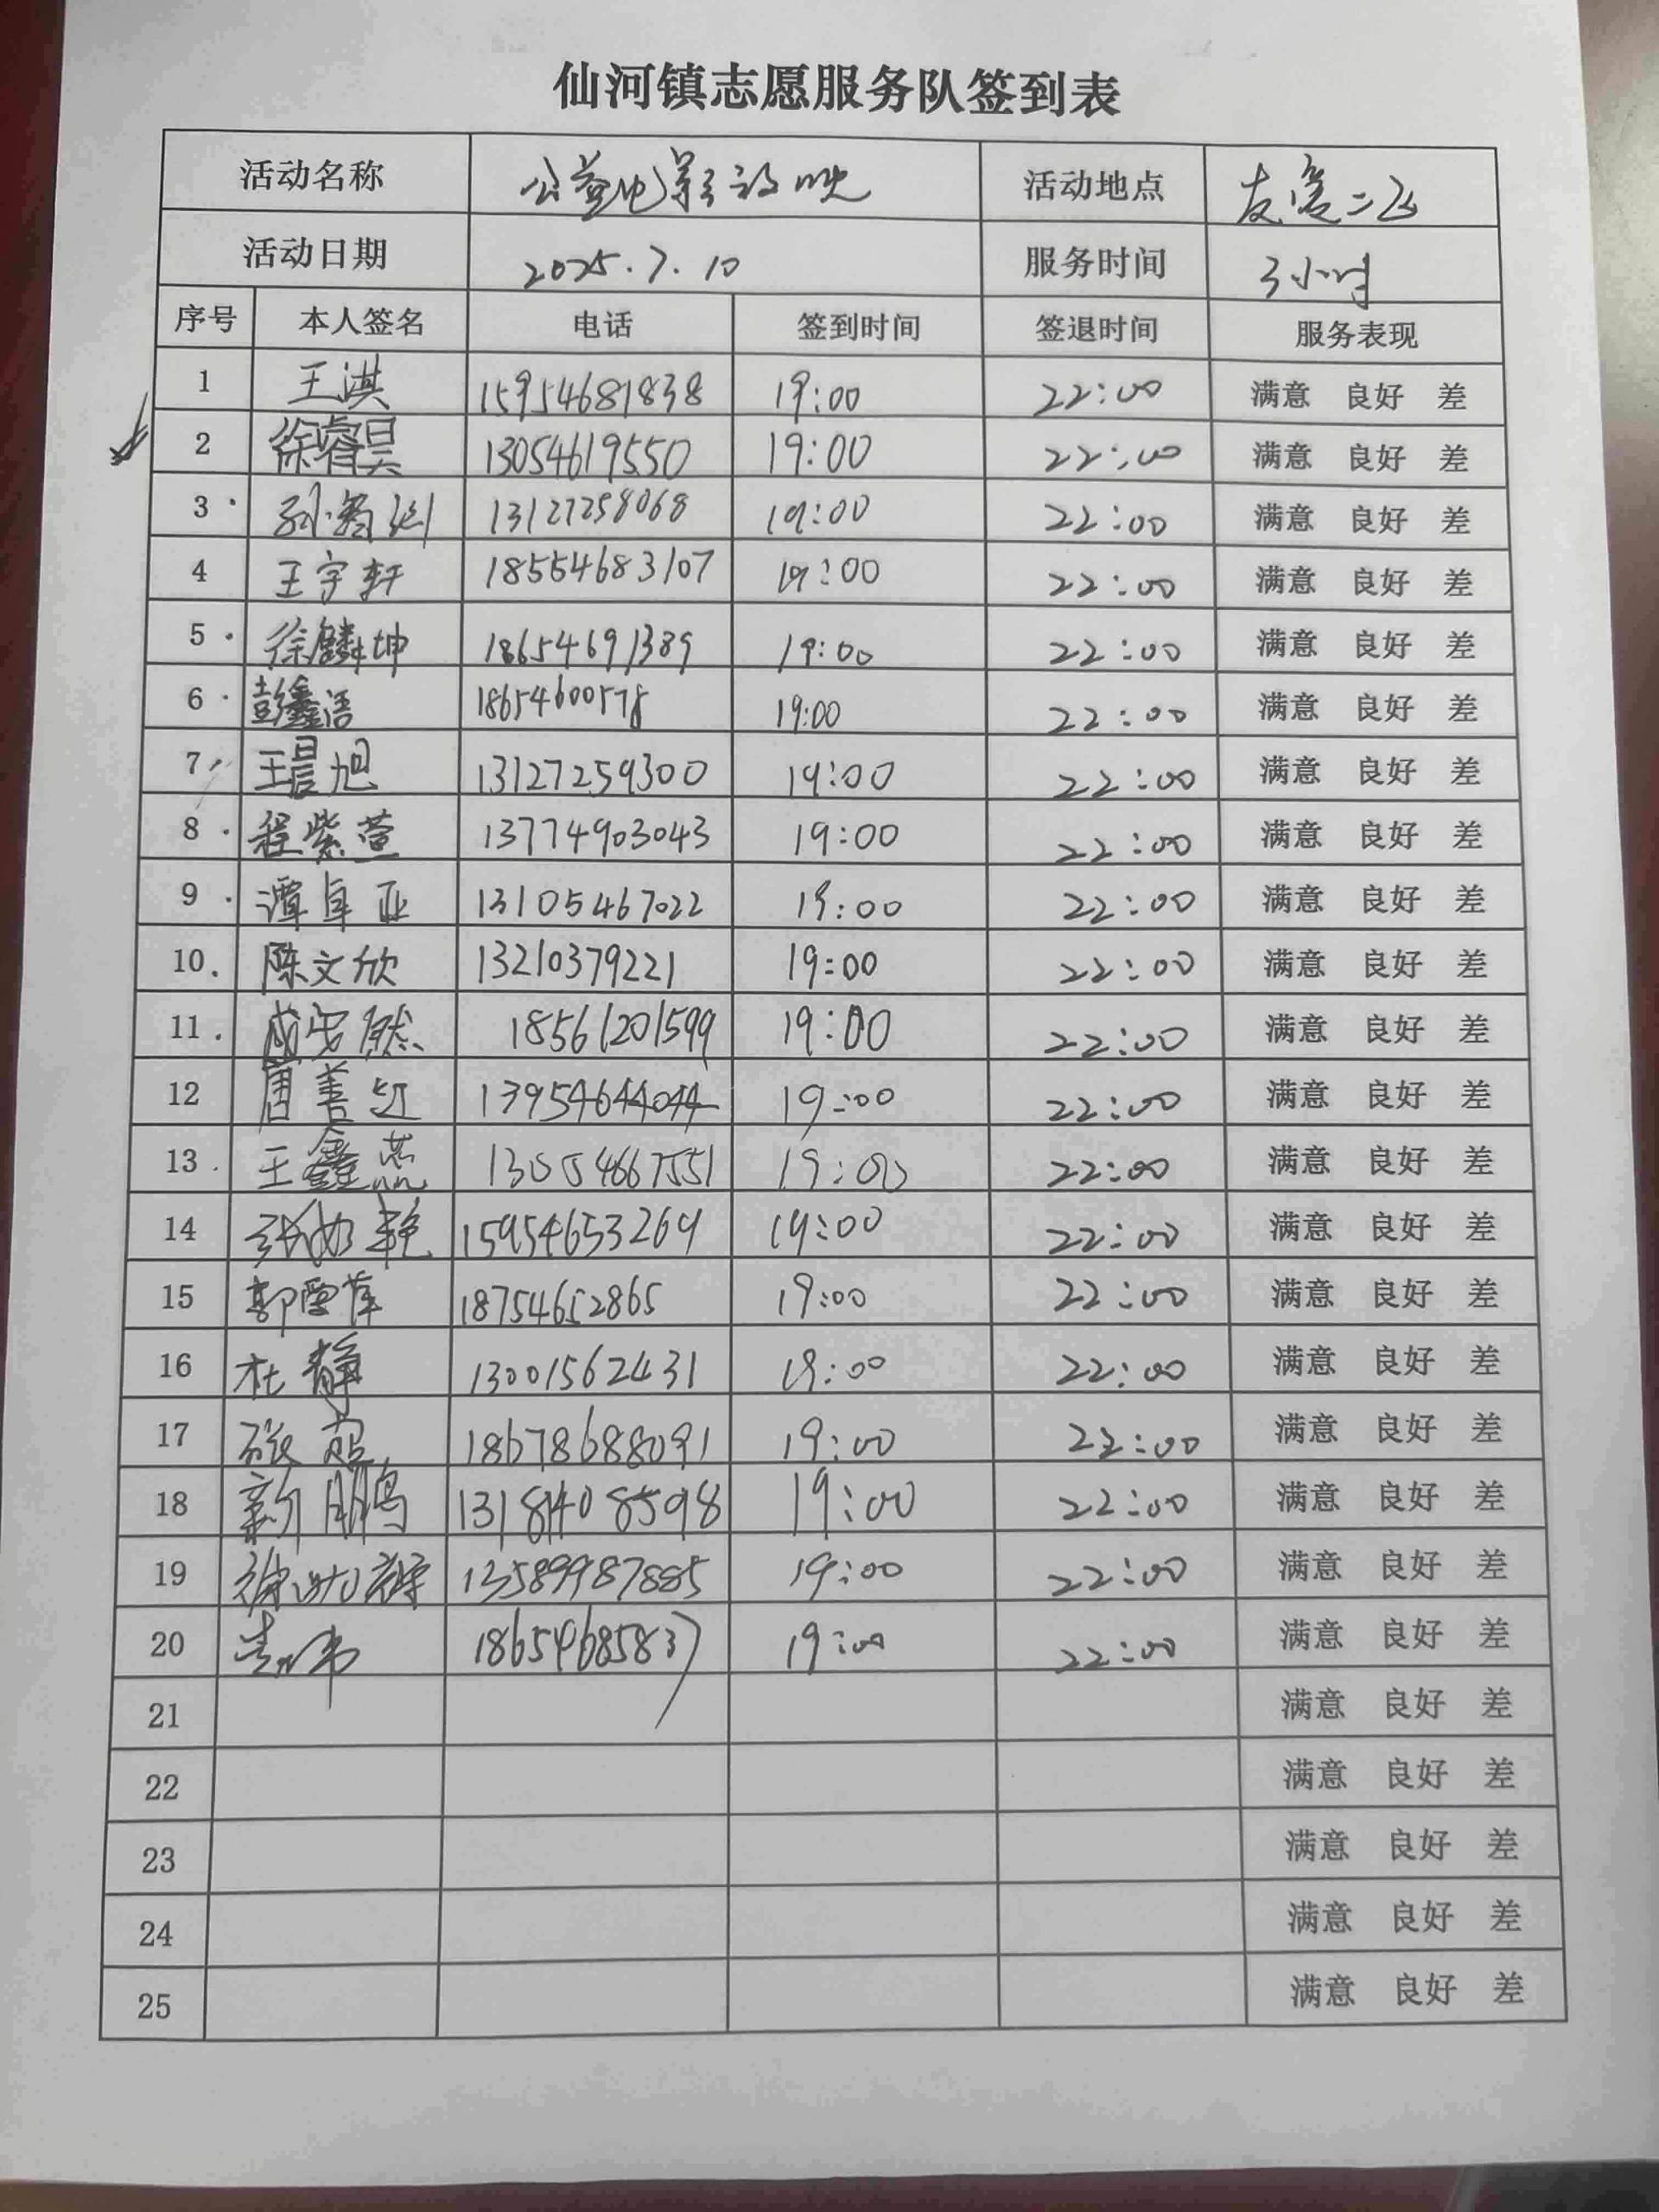 仙河镇志愿服务队签到表
活动名称 公益电影放映 活动地点 友爱二区
活动日期 2025.7.10 服务时间 3小时
序号 本人签名 电话 签到时间 签退时间 服务表现
1 王淇 15954681838 19:00 22:00 满意 良好 差
2 徐睿昊 13054619550 19:00 22:00 满意 良好 差
3 孙 13127258068 19:00 22:00 满意 良好 差
4 王宇轩 18554683107 19:00 22:00 满意 良好 差
5 徐麟坤 18654691389 19:00 22:00 满意 良好 差
6 彭鑫浩 18654600578 19:00 22:00 满意 良好 差
7 王晨旭 13127259300 19:00 22:00 满意 良好 差
8 程紫萱 13774903043 19:00 22:00 满意 良好 差
9 谭卓亚 13105467022 19:00 22:00 满意 良好 差
10 陈文欣 13210379221 19:00 22:00 满意 良好 差
11 成安然 18561201599 19:00 22:00 满意 良好 差
12 唐善红 13954644044 19:00 22:00 满意 良好 差
13 王鑫燕 13054667551 19:00 22:00 满意 良好 差
14 15954653269 19:00 22:00 满意 良好 差
15 郭雪萍 18754652865 19:00 22:00 满意 良好 差
16 杜静 13001562431 19:00 22:00 满意 良好 差
17 张超 18678688091 19:00 22:00 满意 良好 差
18 靳鹏 13181408598 19:00 22:00 满意 良好 差
19 徐 13589987885 19:00 22:00 满意 良好 差
20 18654685837 19:00 22:00 满意 良好 差
21 满意 良好 差
22 满意 良好 差
23 满意 良好 差
24 满意 良好 差
25 满意 良好 差